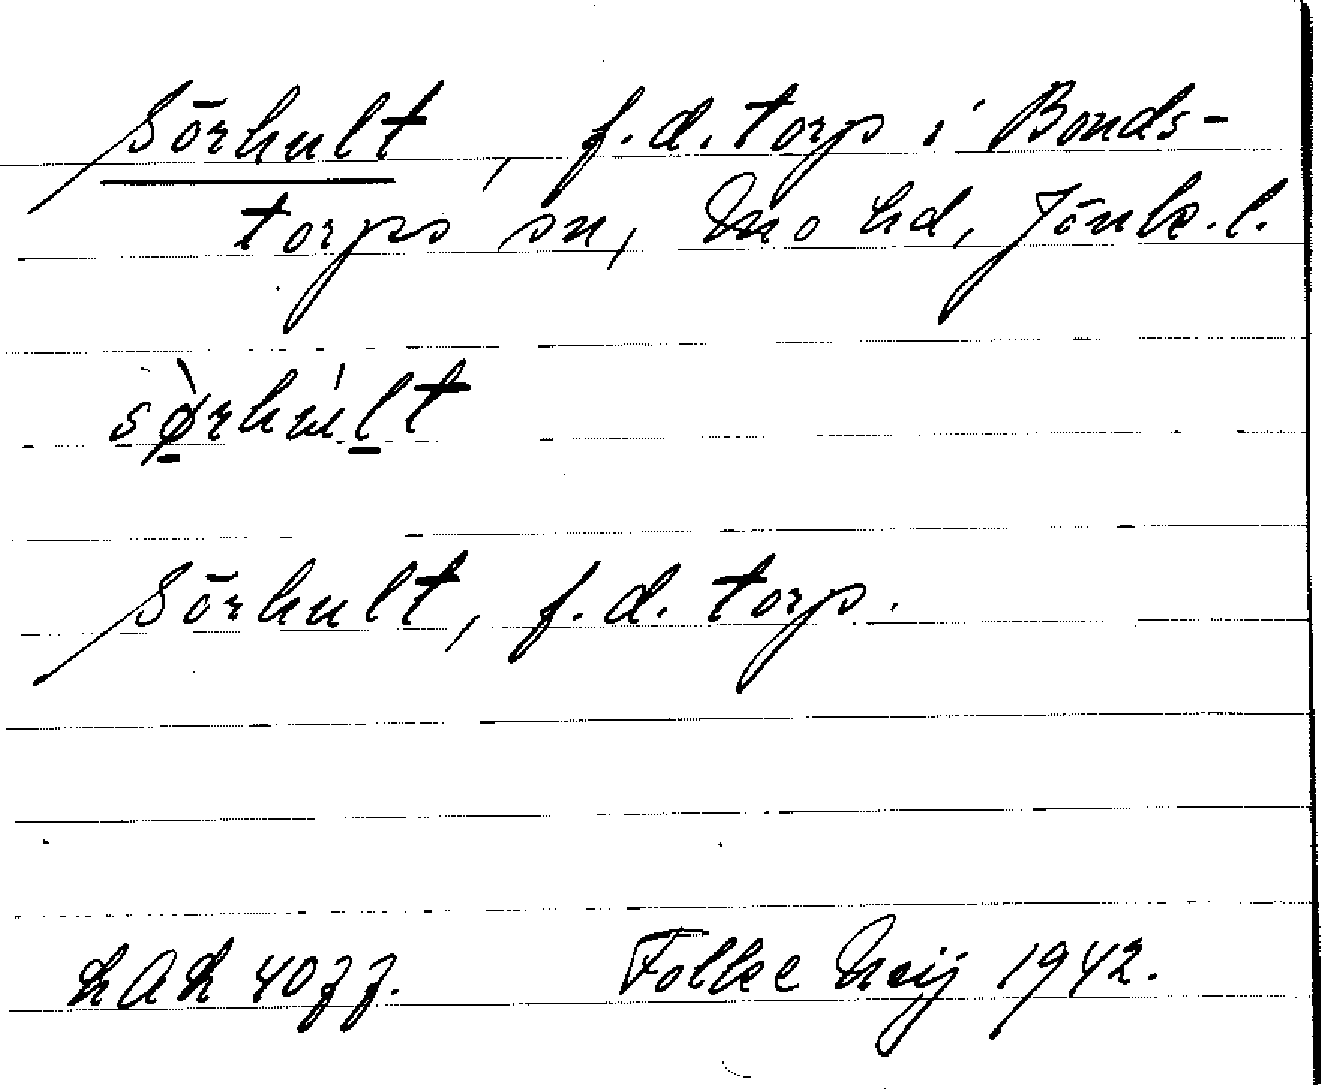 Sörhult, f.d. torp i Bonds-
torps sn, Mo hd, Jönk.l.
sø̀rhúlt
Sörhult, f.d. torp.
Folke Neij 1942.